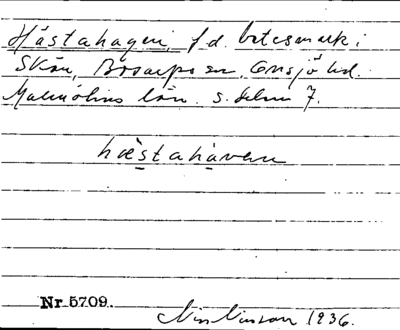 Hästahagen, f.d. betesmark i
Skån, Bosarps sn, Onsjö hd.
Malmöhus län. s. delen 7.
hæstahàven
Nr 5709.
Nils Nilsson 1936.